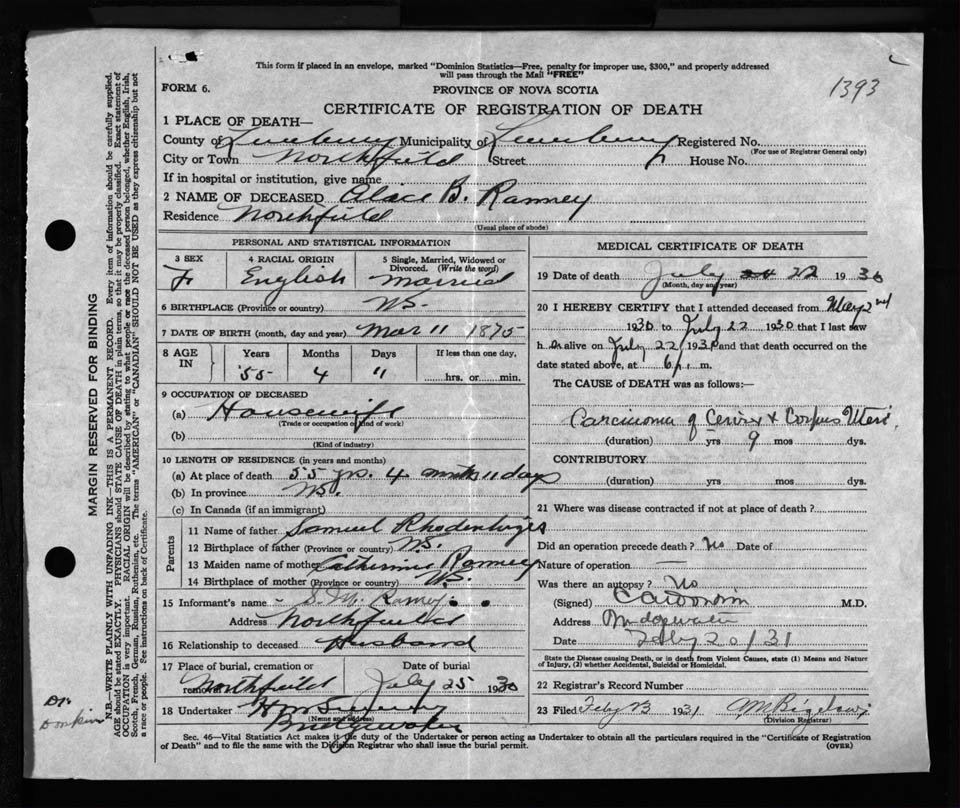 This form if placed in an envelope, marked "Dominion Statistics—Free, penalty for improper use, $300," and properly addressed
will pass through the Mail "FREE"
1393
FORM 6.
PROVINCE OF NOVA SCOTIA
CERTIFICATE OF REGISTRATION OF DEATH
1 PLACE OF DEATH—
County of Lunenburg Municipality of Lunenburg Registered No.
(For use of Registrar General only)
City or Town Northfield Street House No.
If in hospital or institution, give name
2 NAME OF DECEASED Alace B. Ramey
Residence Northfield
(Usual place of abode)
PERSONAL AND STATISTICAL INFORMATION
3 SEX 4 RACIAL ORIGIN 5 Single, Married, Widowed or
Divorced. (Write the word)
F English Married
6 BIRTHPLACE (Province or country) N.S.
7 DATE OF BIRTH (month, day and year) Mar 11 1875
8 AGE IN Years Months Days If less than one day,
55 4 11 hrs. or min.
9 OCCUPATION OF DECEASED
(a) Housewife
(Trade or occupation or kind of work)
(b)
(Kind of industry)
10 LENGTH OF RESIDENCE (in years and months)
(a) At place of death 55 yrs. 4 mnths 11 days
(b) In province N.S.
(c) In Canada (if an immigrant)
Parents
11 Name of father Samuel Rhodenhizer
12 Birthplace of father (Province or country) N.S.
13 Maiden name of mother Catherine Ramey
14 Birthplace of mother (Province or country) N.S.
15 Informant's name S. M. Ramey
Address Northfield
16 Relationship to deceased Husband
17 Place of burial, cremation or removal Date of burial
Northfield July 25 1930
18 Undertaker
(Name and address)
Bridgewater
MEDICAL CERTIFICATE OF DEATH
19 Date of death July 22 1930
(Month, day and year)
20 I HEREBY CERTIFY that I attended deceased from May 2nd
1930 to July 22 1930 that I last saw
h er alive on July 22 1930 and that death occurred on the
date stated above, at 6 p.m.
The CAUSE OF DEATH was as follows:
Carcinoma of Cervix & Corpus Uteri
(duration) yrs 9 mos dys.
CONTRIBUTORY
(duration) yrs. mos. dys.
21 Where was disease contracted if not at place of death?
Did an operation precede death? No Date of
Nature of operation —
Was there an autopsy? No
(Signed) M.D.
Address Bridgewater
Date Feby 20/31
State the Disease causing Death, or in death from Violent Causes, state (1) Means and Nature
of Injury, (2) whether Accidental, Suicidal or Homicidal.
22 Registrar's Record Number
23 Filed Feby 23 1931 M Bigelow
(Division Registrar)
Sec. 46—Vital Statistics Act makes it the duty of the Undertaker or person acting as Undertaker to obtain all the particulars required in the "Certificate of Registration
of Death" and to file the same with the Division Registrar who shall issue the burial permit. (OVER)
MARGIN RESERVED FOR BINDING
N.B.—WRITE PLAINLY WITH UNFADING INK—THIS IS A PERMANENT RECORD. Every item of information should be carefully supplied.
AGE should be stated EXACTLY. PHYSICIANS should STATE CAUSE OF DEATH in plain terms, so that it may be properly classified. Exact statement of
OCCUPATION is very important. RACIAL ORIGIN will be described by stating to what people or race the deceased person belonged, whether English, Irish,
Scotch, French, German, Russian, Ruthenian, etc. The terms "AMERICAN" or "CANADIAN" SHOULD NOT BE USED as they express citizenship but not
a race or people. See instructions on back of Certificate.
Dr.
Donkin